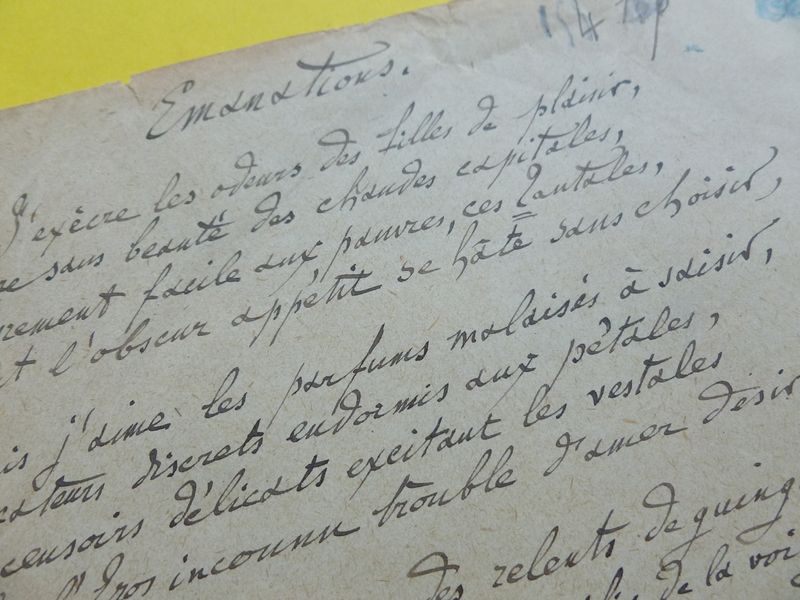 Emanations.
J'exècre les odeurs des filles de plaisir,
sans beauté des chaudes capitales,
facile aux pauvres, ces Tantales,
l'obscur appétit se hâte sans choisir,
j'aime les parfums malaisés à saisir,
discrets endormis aux pétales,
délicats excitant les vestales
d'Eros inconnu trouble d'amer désir
des relents de
de la